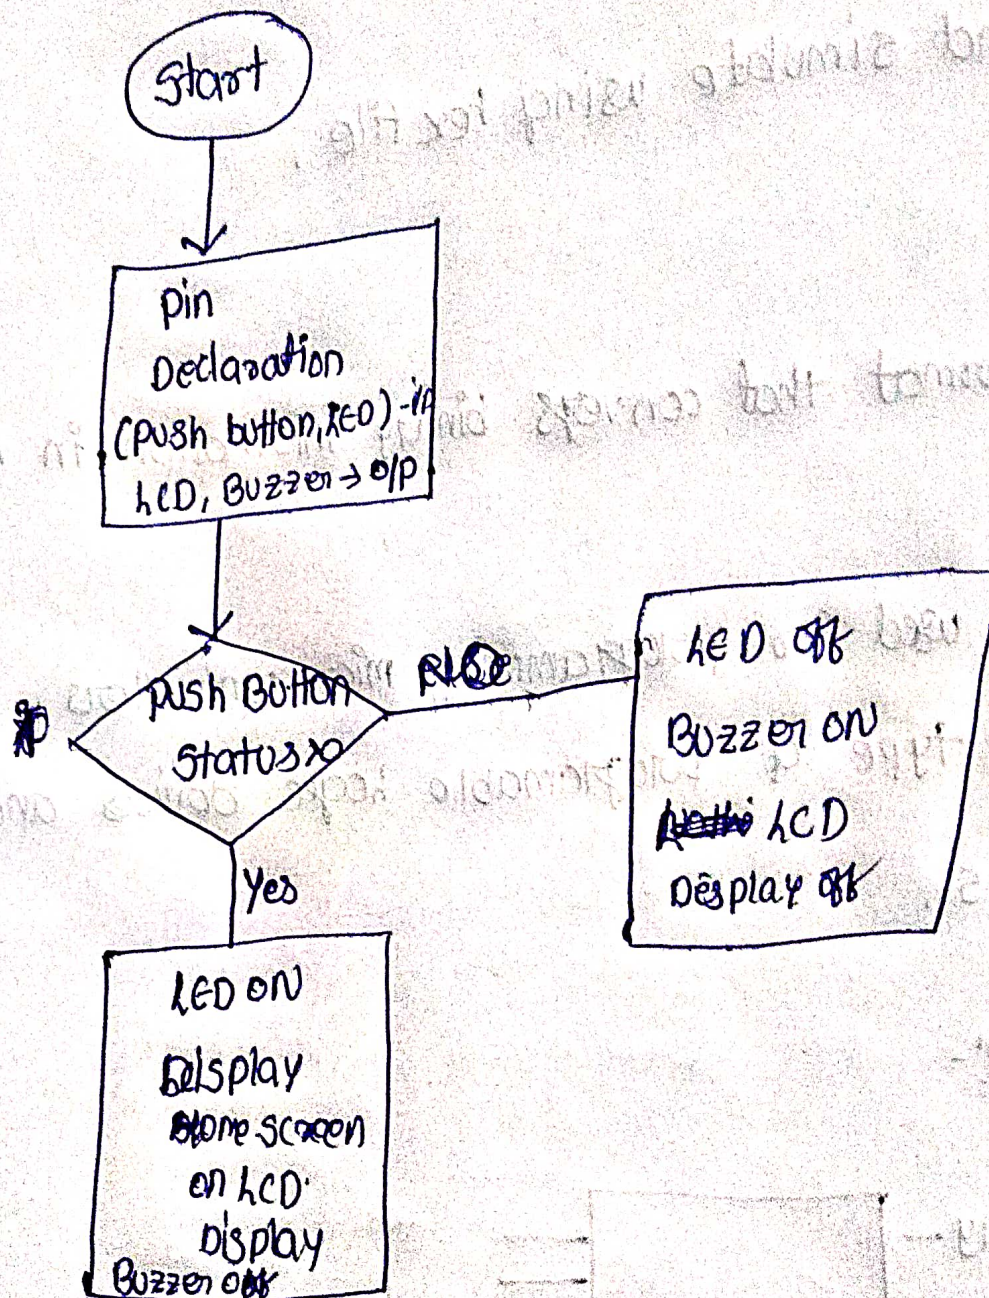 Start
Pin
Declaration
(Push button, LED) - i/p
LCD, Buzzer → O/P
Push Button
Status >0
else
Yes
LED off
Buzzer ON
LCD
Display off
LED ON
Display
screen
on LCD
Display
Buzzer off